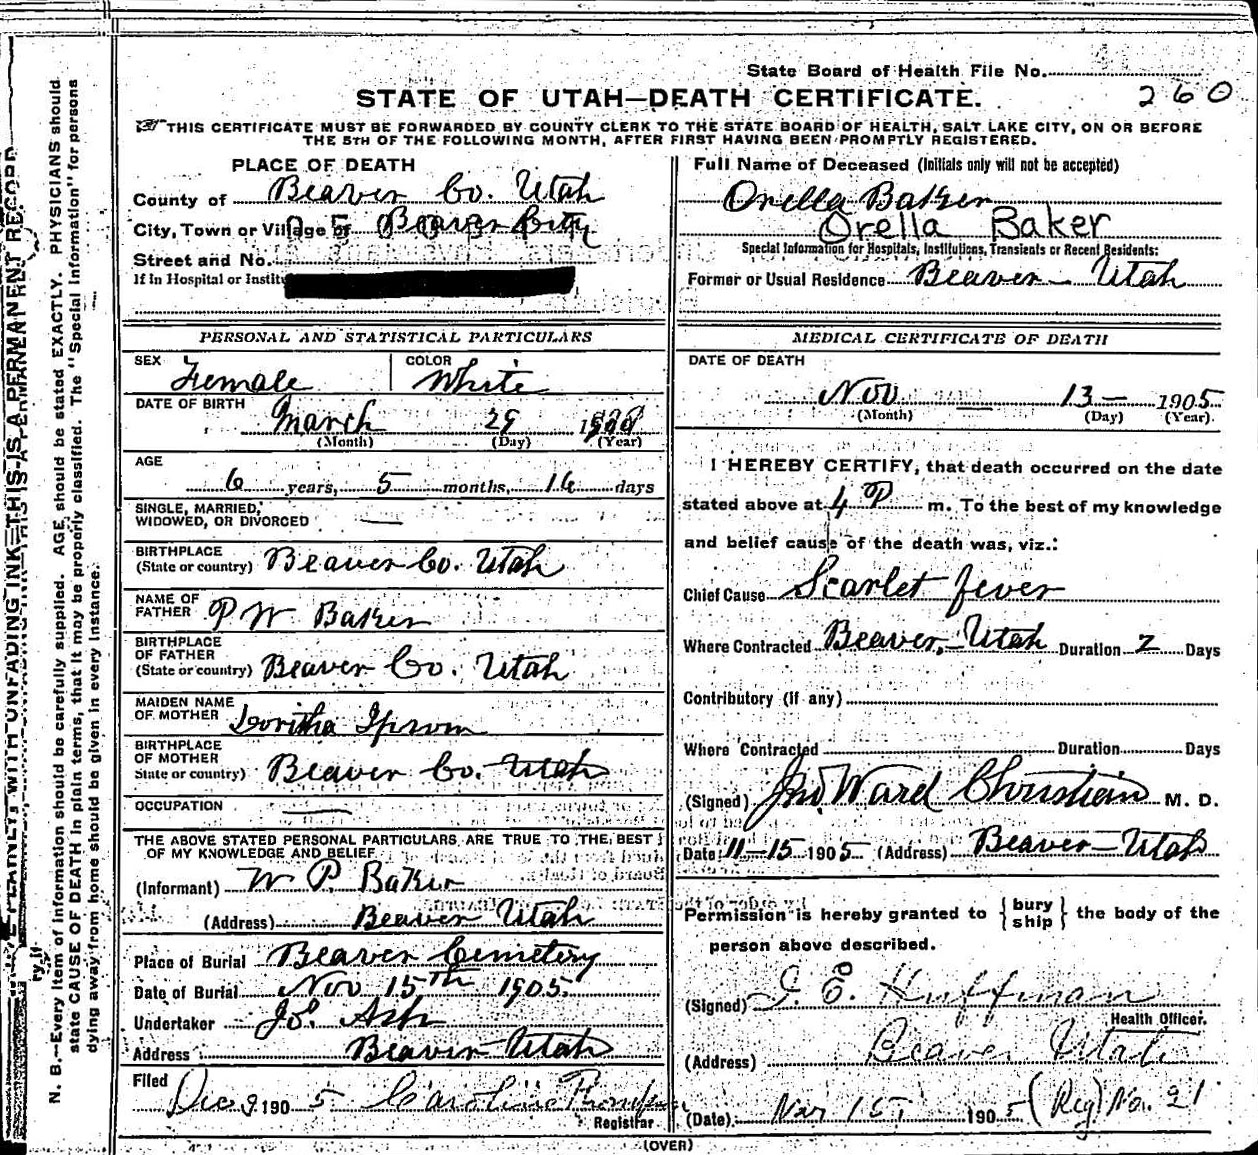 State Board of Health File No.
260
STATE OF UTAH—DEATH CERTIFICATE.
THIS CERTIFICATE MUST BE FORWARDED BY COUNTY CLERK TO THE STATE BOARD OF HEALTH, SALT LAKE CITY, ON OR BEFORE
THE 5TH OF THE FOLLOWING MONTH, AFTER FIRST HAVING BEEN PROMPTLY REGISTERED.
PLACE OF DEATH
County of Beaver Co. Utah
City, Town or Village of Beaver City
Street and No.
If in Hospital or Instit
Full Name of Deceased (Initials only will not be accepted)
Orella Baker
Orella Baker
Special Information for Hospitals, Institutions, Transients or Recent Residents:
Former or Usual Residence Beaver – Utah
PERSONAL AND STATISTICAL PARTICULARS
SEX Female COLOR White
DATE OF BIRTH
March 29
(Month) (Day) (Year)
AGE
6 years, 5 months, 16 days
SINGLE, MARRIED,
WIDOWED, OR DIVORCED —
BIRTHPLACE
(State or country) Beaver Co. Utah
NAME OF
FATHER P W Baker
BIRTHPLACE
OF FATHER
(State or country) Beaver Co. Utah
MAIDEN NAME
OF MOTHER
BIRTHPLACE
OF MOTHER
State or country) Beaver Co. Utah
OCCUPATION —
THE ABOVE STATED PERSONAL PARTICULARS ARE TRUE TO THE BEST
OF MY KNOWLEDGE AND BELIEF
(Informant) W P. Baker
(Address) Beaver Utah
Place of Burial Beaver Cemetery
Date of Burial Nov 15th 1905
Undertaker Jos. Ash
Address Beaver Utah
Filed
Dec 9 1905 Caroline
Registrar
MEDICAL CERTIFICATE OF DEATH
DATE OF DEATH
Nov 13 – 1905
(Month) (Day) (Year).
I HEREBY CERTIFY, that death occurred on the date
stated above at 4 P m. To the best of my knowledge
and belief cause of the death was, viz.:
Chief Cause Scarlet fever
Where Contracted Beaver, – Utah Duration 2 Days
Contributory (if any)
Where Contracted Duration Days
(Signed) Jno. Ward Christian M. D.
Date 11-15 1905 (Address) Beaver – Utah
Permission is hereby granted to { bury ship } the body of the
person above described.
(Signed) J. E. Huffman
Health Officer.
(Address) Beaver Utah
(Date) 1905 (Reg) No. 21
(OVER)
N. B.—Every item of information should be carefully supplied. AGE should be stated EXACTLY. PHYSICIANS should
state CAUSE OF DEATH in plain terms, that it may be properly classified. The "Special Information" for persons
dying away from home should be given in every instance.
WITH UNFADING INK—THIS IS A PERMANENT RECORD